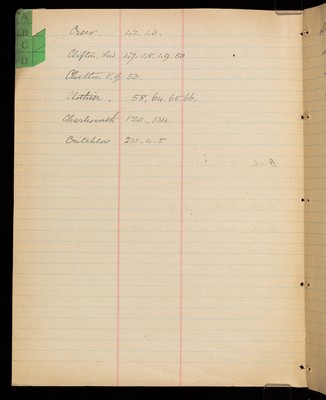 A
B
C
D
Creer 42. 43.
Clifton, 47. 48. 49. 50
Chilton V. G. 53.
58. 64. 65. 66.
Charlesworth 120. 134.
Critchlow 233. 4. 5